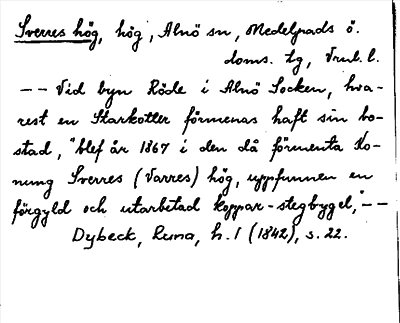 Sverres hög, hög, Alnö sn, Medelpads ö.
doms. tg, Vnrl. l.
-- Vid byn Röde i Alnö Socken, hva-
rest en Starkotter förmenas haft sin bo-
stad, "blef år 1867 i den då förmenta Ko-
nung Sverres (Varres) hög, uppfunnen en
förgyld och utarbetad koppar-stegbygel," --
Dybeck, Runa, h. 1 (1842), s. 22.